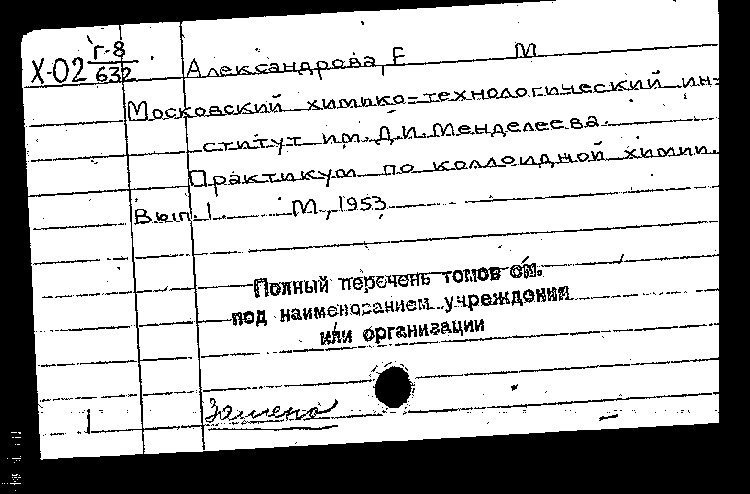 Х-02 Г-8/632
Александрова, Е М
Московский химико-технологический ин-
ститут им. Д.И. Менделеева.
Практикум по коллоидной химии.
Вып. 1. М, 1953
Полный перечень томов см.
под наименованием учреждения
или организации
1 Замена